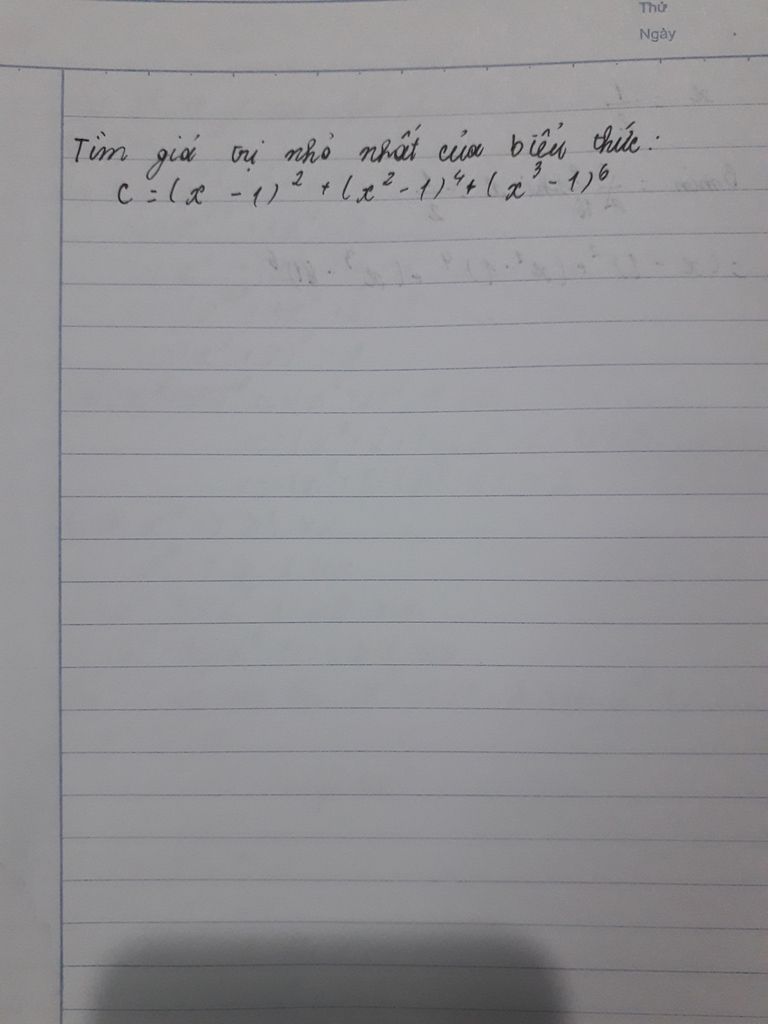 Thứ
Ngày
Tìm giá trị nhỏ nhất của biểu thức:
C = (x - 1)² + (x² - 1)⁴ + (x³ - 1)⁶